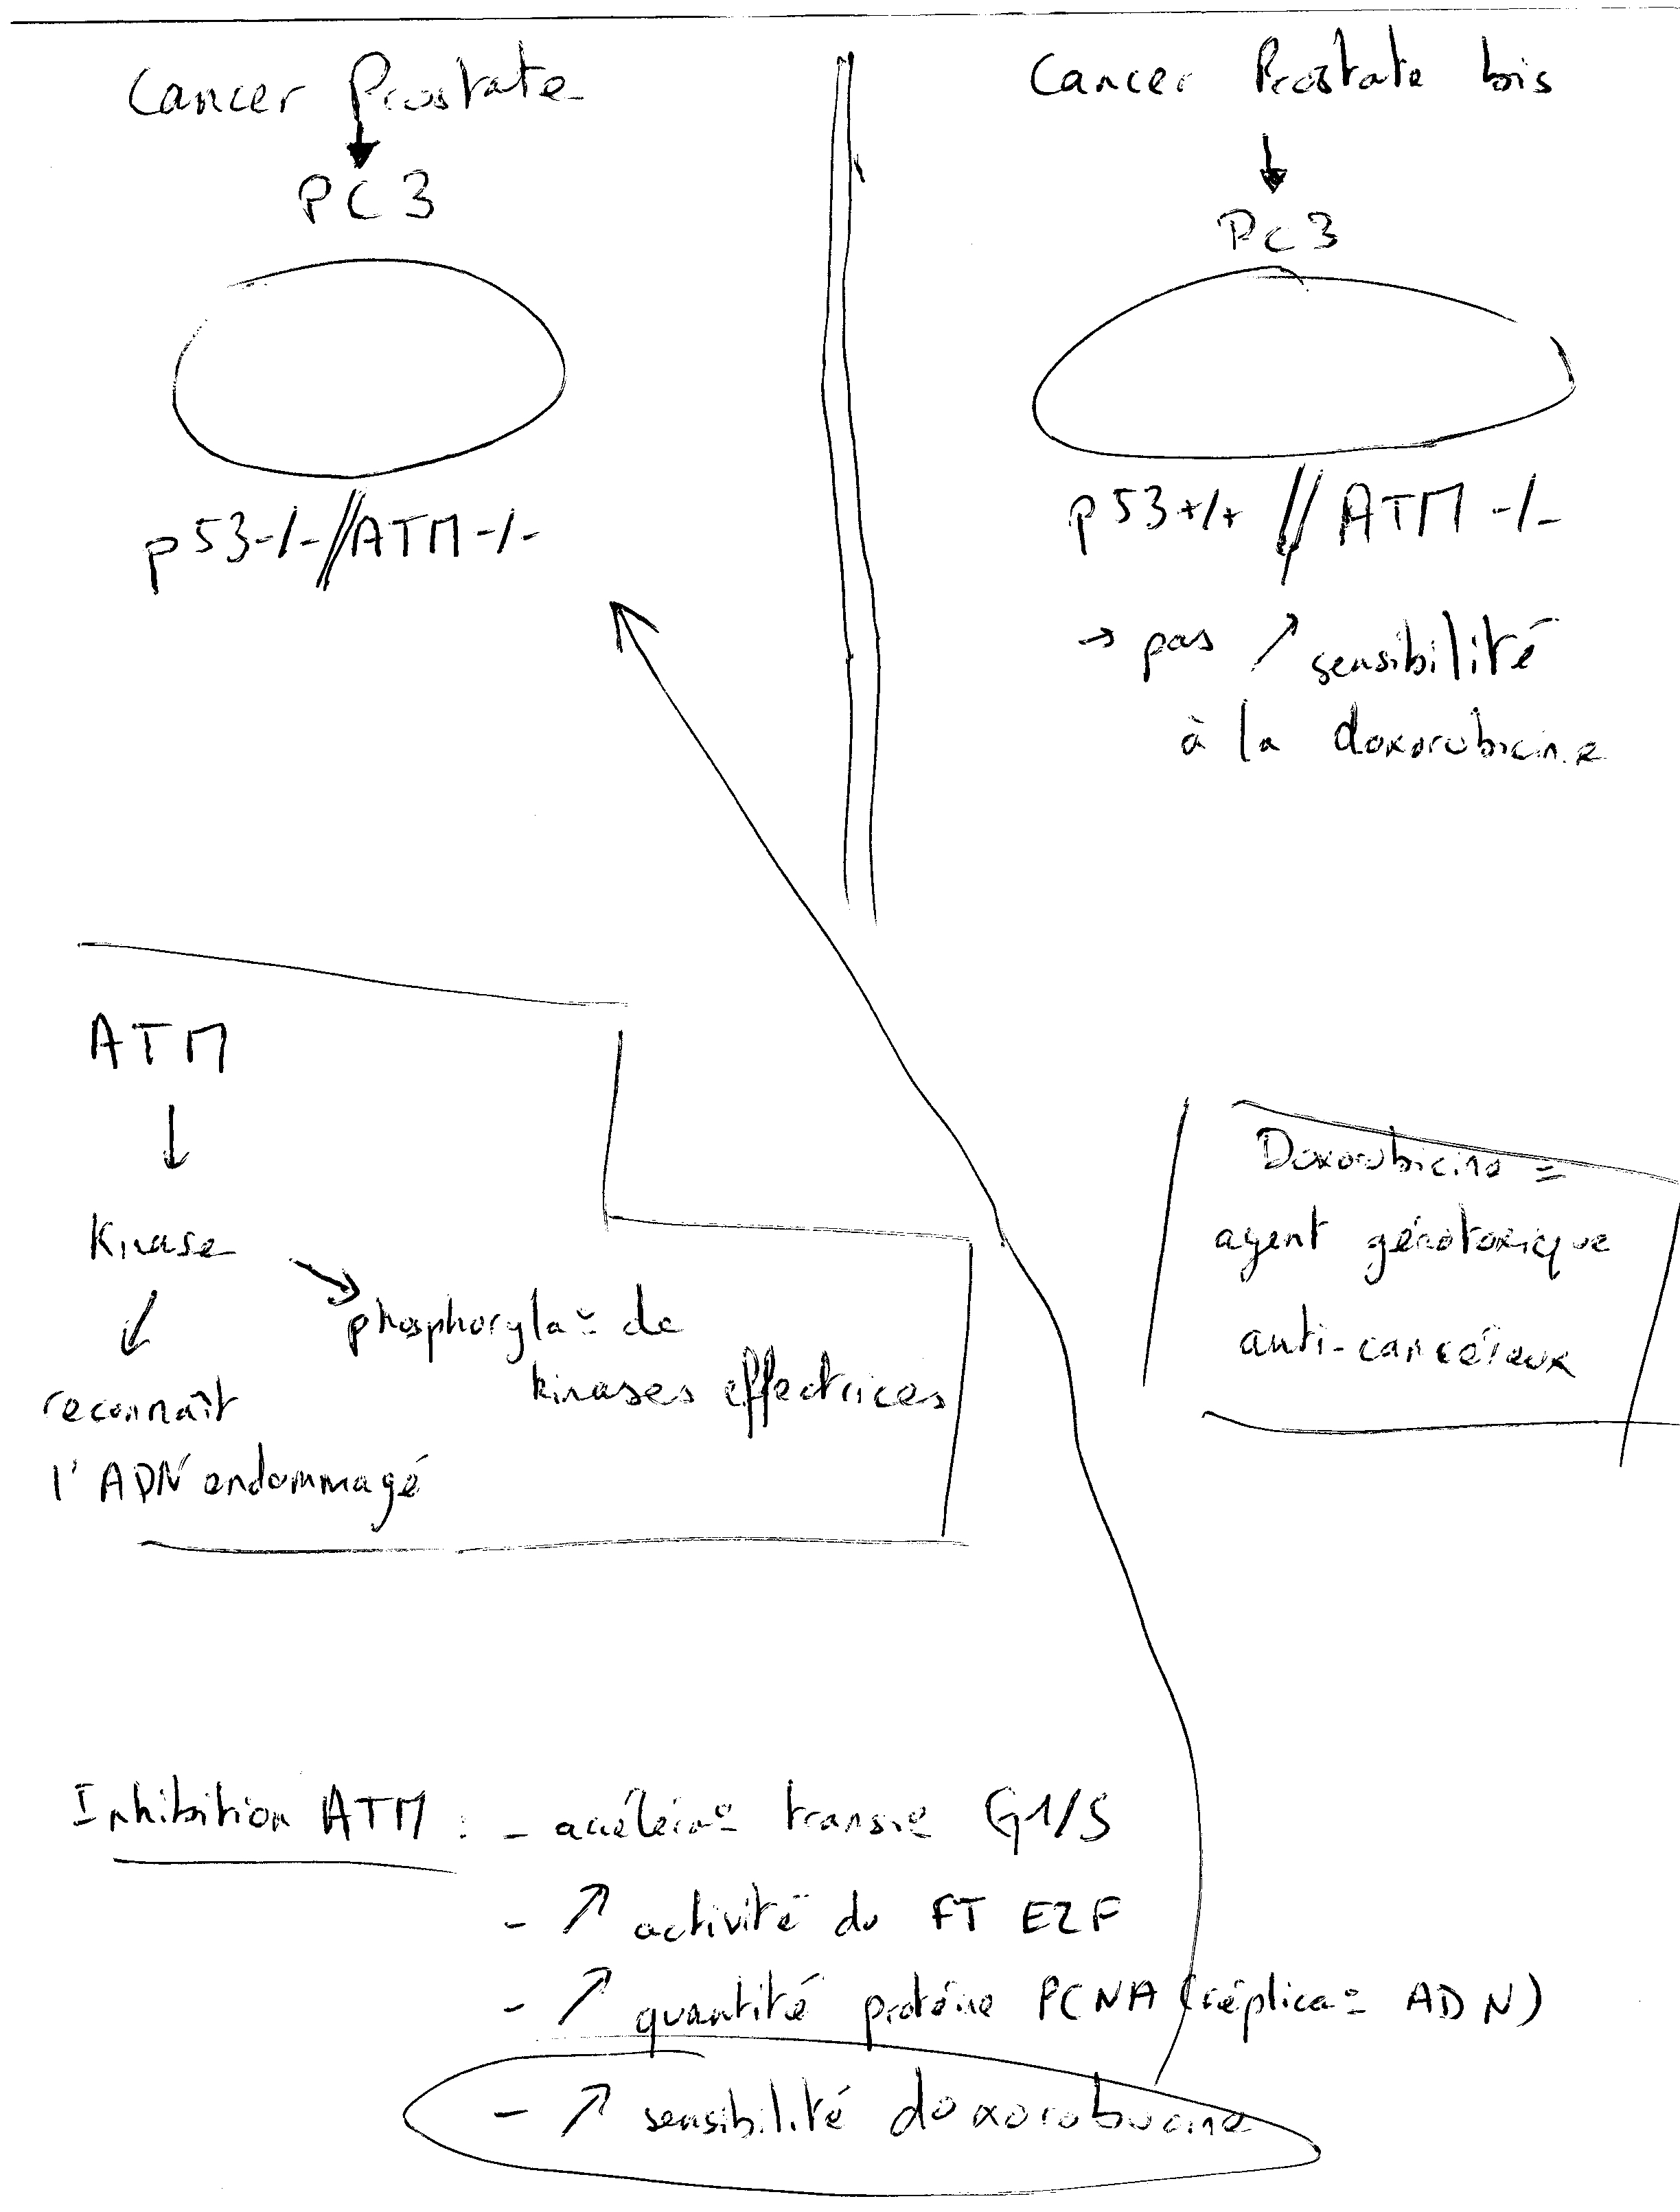 Cancer Prostate
PC3
p53-/-//ATM-/-
Cancer Prostate bis
PC3
p53+/+ // ATM -/-
→ pas ↗ sensibilité
à la doxorubicine
ATM
↓
Kinase
↙ ↘
phosphoryla° de
kinases effectrices
reconnaît
l'ADN endommagé
Doxorubicine =
agent génotoxique
anti-cancéreux
Inhibition ATM : - accéléra° G1/S
- ↗ activité du FT E2F
- ↗ quantité protéine PCNA (réplica° ADN)
- ↗ sensibilité doxorubucine